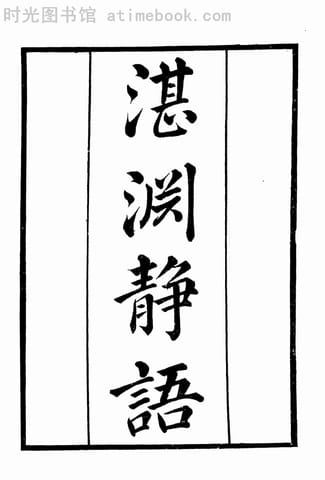 时光图书馆 atimebook.com
湛渊静語